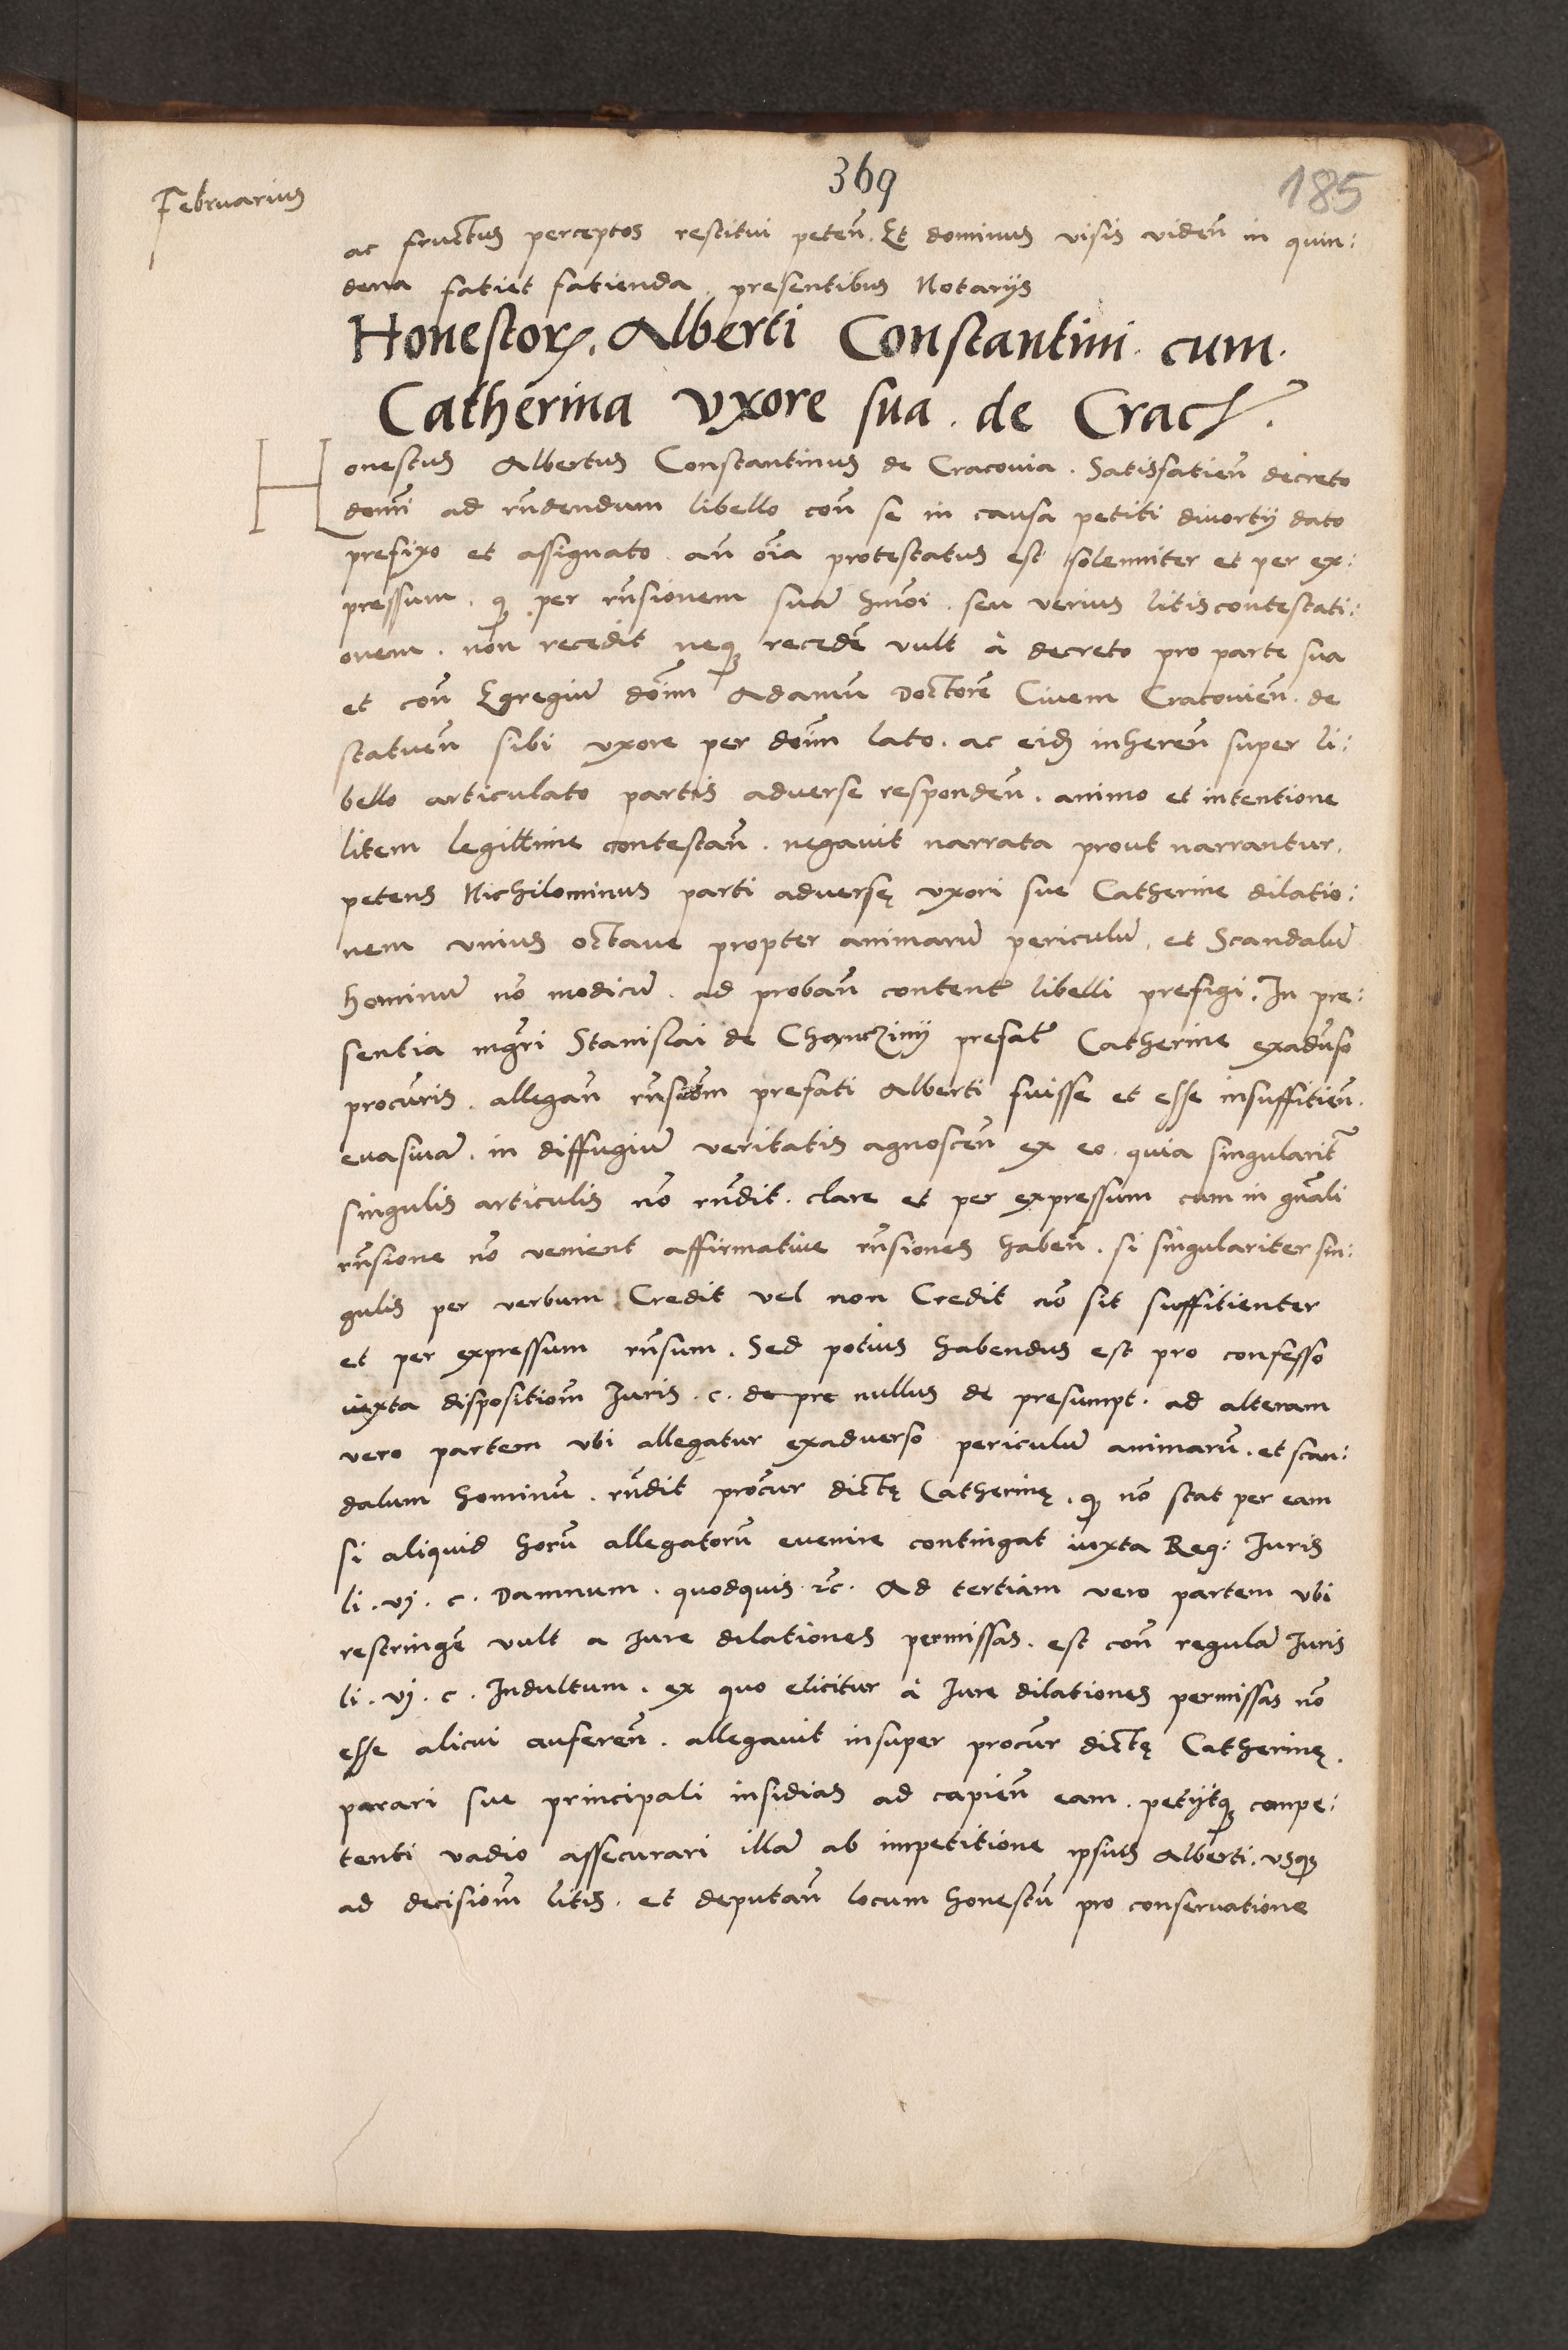 369
185
Februarius
ac fructus perceptos restitui peteñ. Et dominus visis videñ in quin:
dena fatiet fatienda. presentibus Notarijs
Honestoꝝ. Alberti Constantini. cum.
Catherina vxore sua. de Crac̃.
Honestus Albertus Constantinus de Cracouia. Satisfatieñ decreto
dom̃i ad rñdendum libello coñ se in causa petiti diuortij dato
prefixo et assignato. añ oĩa protestatus est solenniter et per ex:
pressum. ꝙ per rñsionem suã hm̃oi. seu verius litiscontestati:
onem. non recedit neqꝫ recedẽ vult à decreto pro parte sua
et coñ Egregiũ dõim Adamũ Doctorẽ Ciuem Cracouieñ. de
statueñ sibi vxore per doim̃ lato. ac eidꝫ inhereñ super li:
bello articulato partis aduerse respondeñ. animo et intentione
litem legittime contestañ. negauit narrata prout narrantur.
petens Nichilominus parti aduersę vxori sue Catherine dilatio:
nem vnius octaue propter animarũ periculũ. et Scandalũ
hominũ nõ modicũ. ad probañ content̃ libelli prefigi. In pre:
sentia mgr̃i Stanislai de Chanczinij prefat̃ Catherine exaduso
procuris. allegañ rñseom̃ prefati Alberti fuisse et esse insuffitieñ.
euasiuã. in diffugiũ veritatis agnosceñ ex eo. quia singularit̃
singulis articulis nõ rñdit. clare et per expressum cum in gñali
rñsione nõ venient affirmatiue rñsiones habeñ. si singulariter sin:
gulis per verbum Credit vel non Credit nõ sit suffitienter
et per expressum rñsum. Sed potius habendus est pro confesso
iuxta dispositiom̃ Iuris. c. de pre nullus de presumpt. ad alteram
vero partem vbi allegatur exaduerso periculũ animarũ. et scan:
dalum hominũ. rñdit procur̃ dictę Catherinę. ꝙ nõ stat per eam
si aliquid horũ allegatorũ euenire contingat iuxta Reg: Iuris
li. vj. c. Damnum. quodquis ꝛc̃. Ad tertiam vero partem vbi
restringẽ vult a Iure dilationes permissas. est coñ regulã Iuris
li. vj. c. Indultum. ex quo elicitur à Iure dilationes permissas nõ
esse alicui aufereñ. allegauit insuper procur̃ dictę Catherinę.
parari sue principali insidias ad capieñ eam. petijtqꝫ conpe:
tenti vadio assecurari illã ab impetitione ipsius Alberti. vsqꝫ
ad decisiom̃ litis. et deputañ locum honestũ pro conseruatione